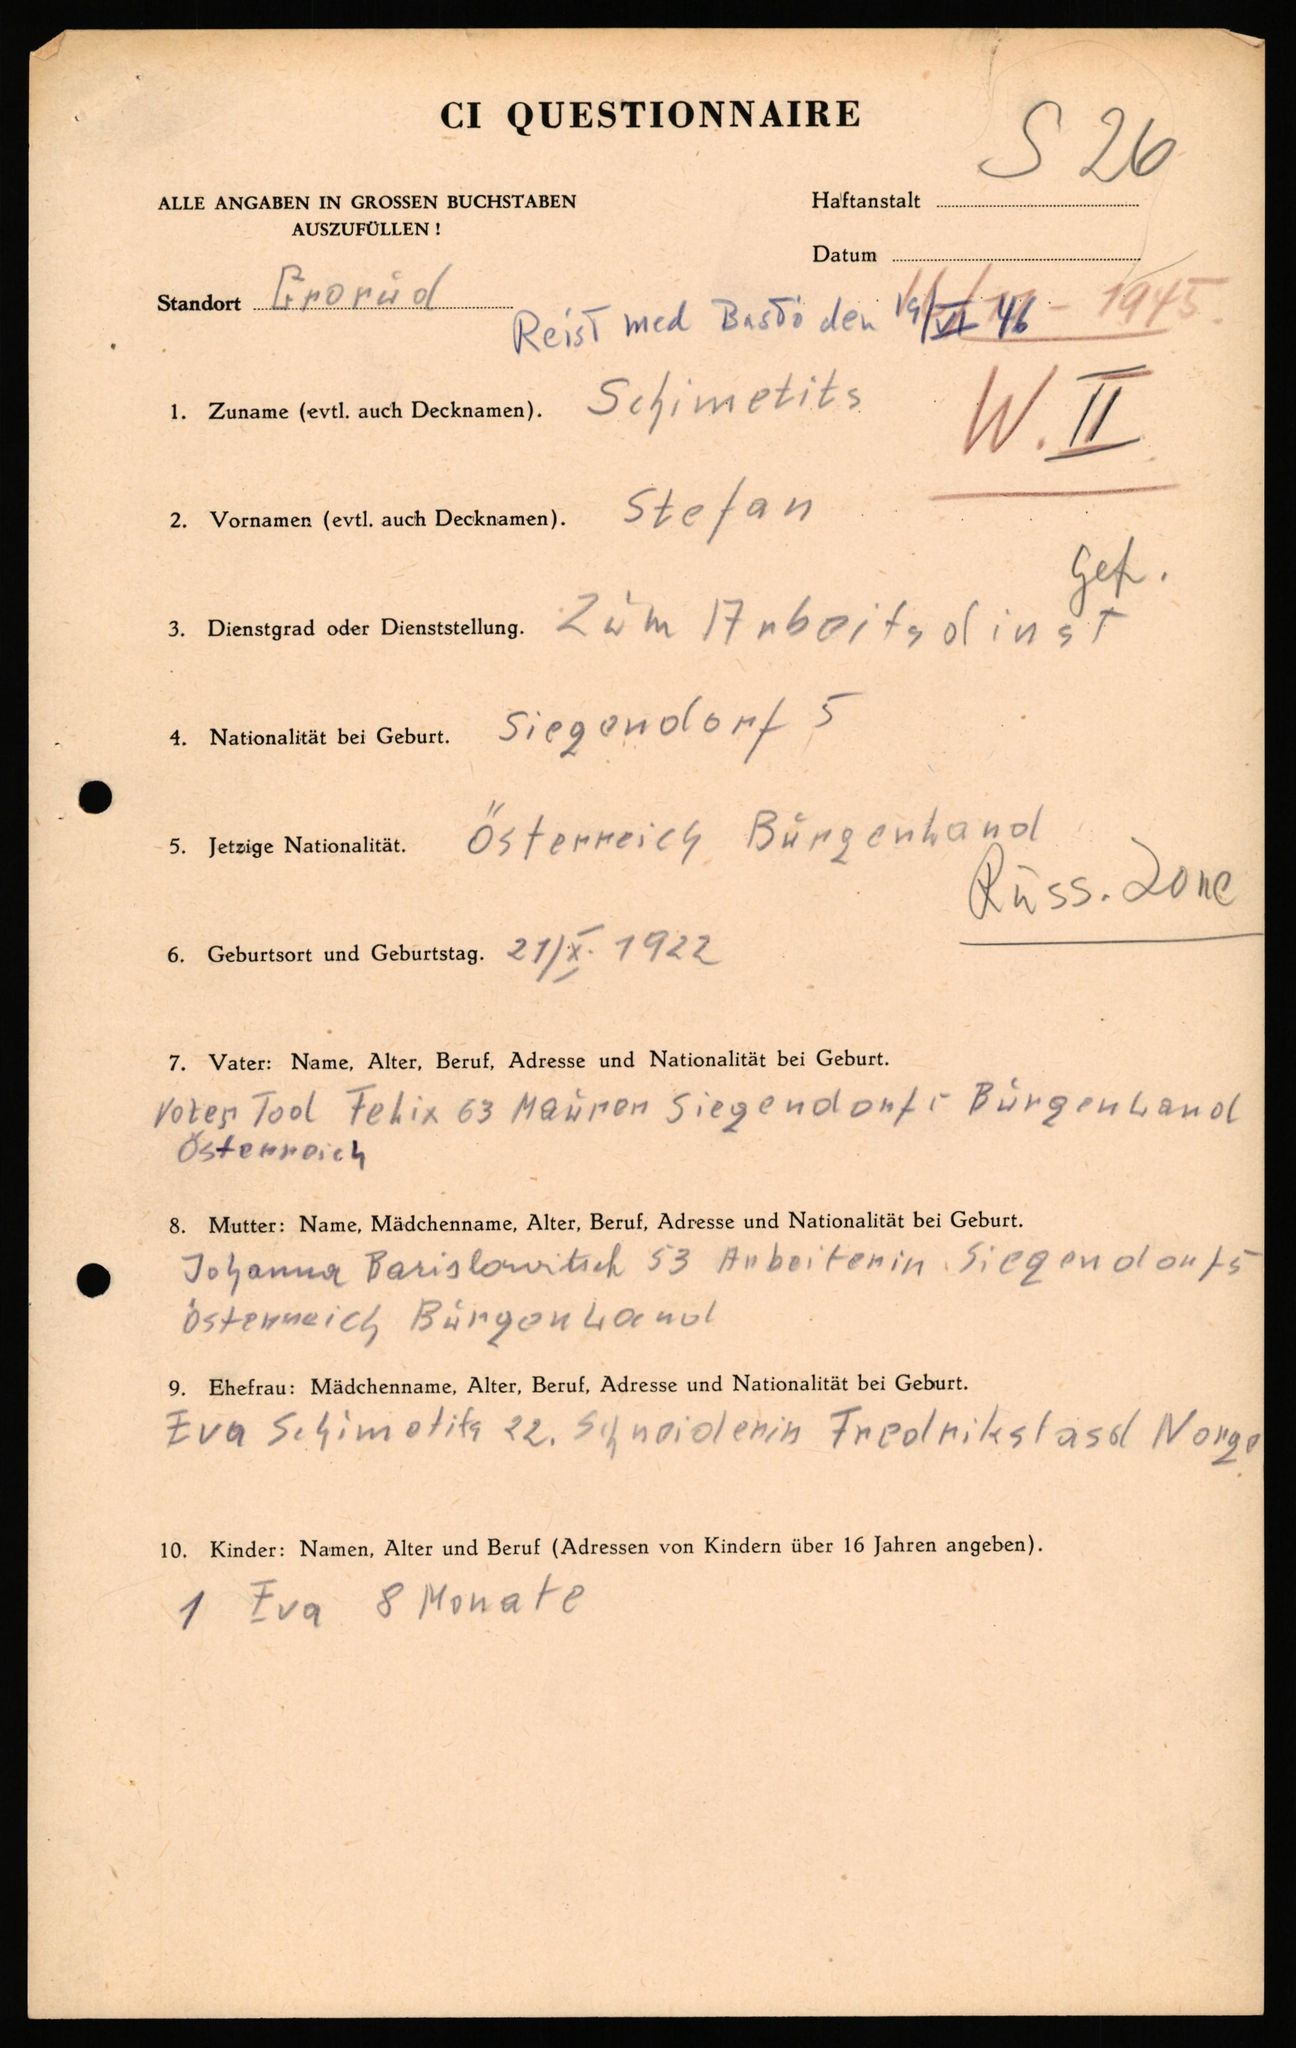 CI QUESTIONNAIRE
S 26
ALLE ANGABEN IN GROSSEN BUCHSTABEN
AUSZUFÜLLEN !
Haftanstalt
Datum
Standort Grorud
1945.
Reist med Bastö den 19/VI 46
1. Zuname (evtl. auch Decknamen). Schimetits
W. II
2. Vornamen (evtl. auch Decknamen). Stefan
Gefr.
3. Dienstgrad oder Dienststellung. Zum Arbeitsdinst
4. Nationalität bei Geburt. Siegendorf 5
5. Jetzige Nationalität. Österreich Burgenland
Russ. Zone
6. Geburtsort und Geburtstag. 21/X. 1922
7. Vater: Name, Alter, Beruf, Adresse und Nationalität bei Geburt.
Vater Tod Felix 63 Maurer Siegendorf 5 Burgenland
Österreich
8. Mutter: Name, Mädchenname, Alter, Beruf, Adresse und Nationalität bei Geburt.
Johanna Barislowitsch 53 Arbeiterin Siegendorf 5
Österreich Burgenland
9. Ehefrau: Mädchenname, Alter, Beruf, Adresse und Nationalität bei Geburt.
Eva Schimetits 22. Schneiderin Fredrikstasd Norge
10. Kinder: Namen, Alter und Beruf (Adressen von Kindern über 16 Jahren angeben).
1 Eva 8 Monate